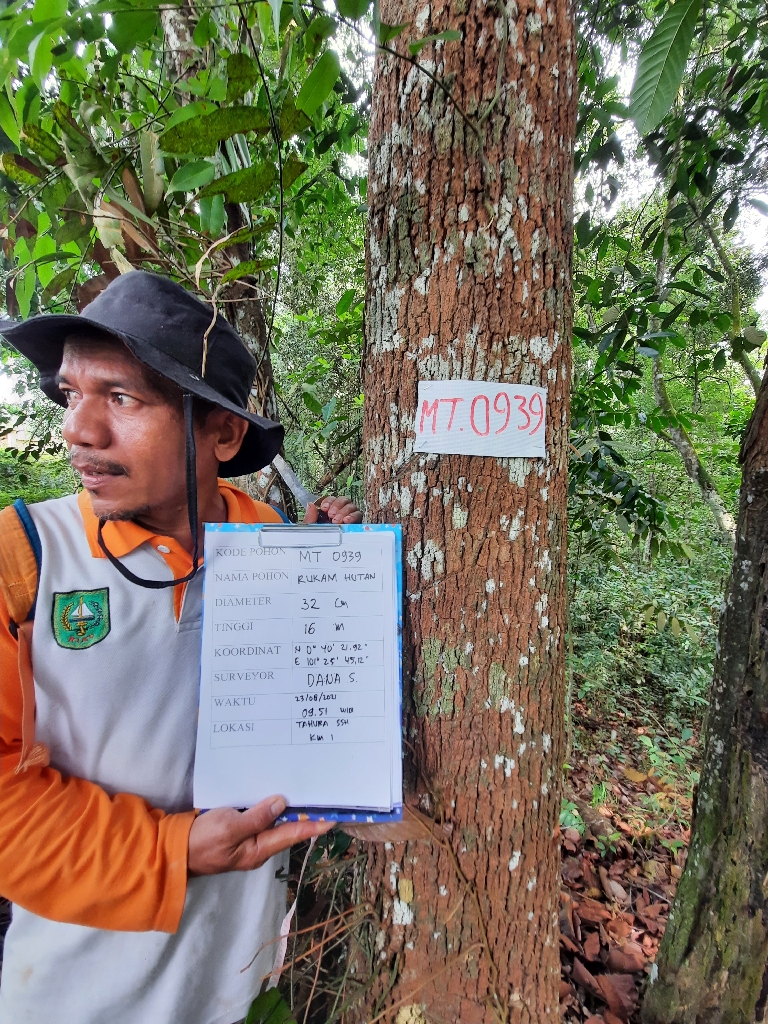 MT.0939
KODE POHON MT 0939
NAMA POHON RUKAM HUTAN
DIAMETER 32 Cm
TINGGI 16 m
KOORDINAT N 0° 40' 21,92"
E 101° 25' 45,12"
SURVEYOR DANA S.
WAKTU 23/08/2021
09.51 WIB
LOKASI TAHURA SSH
KM 1
RIAU